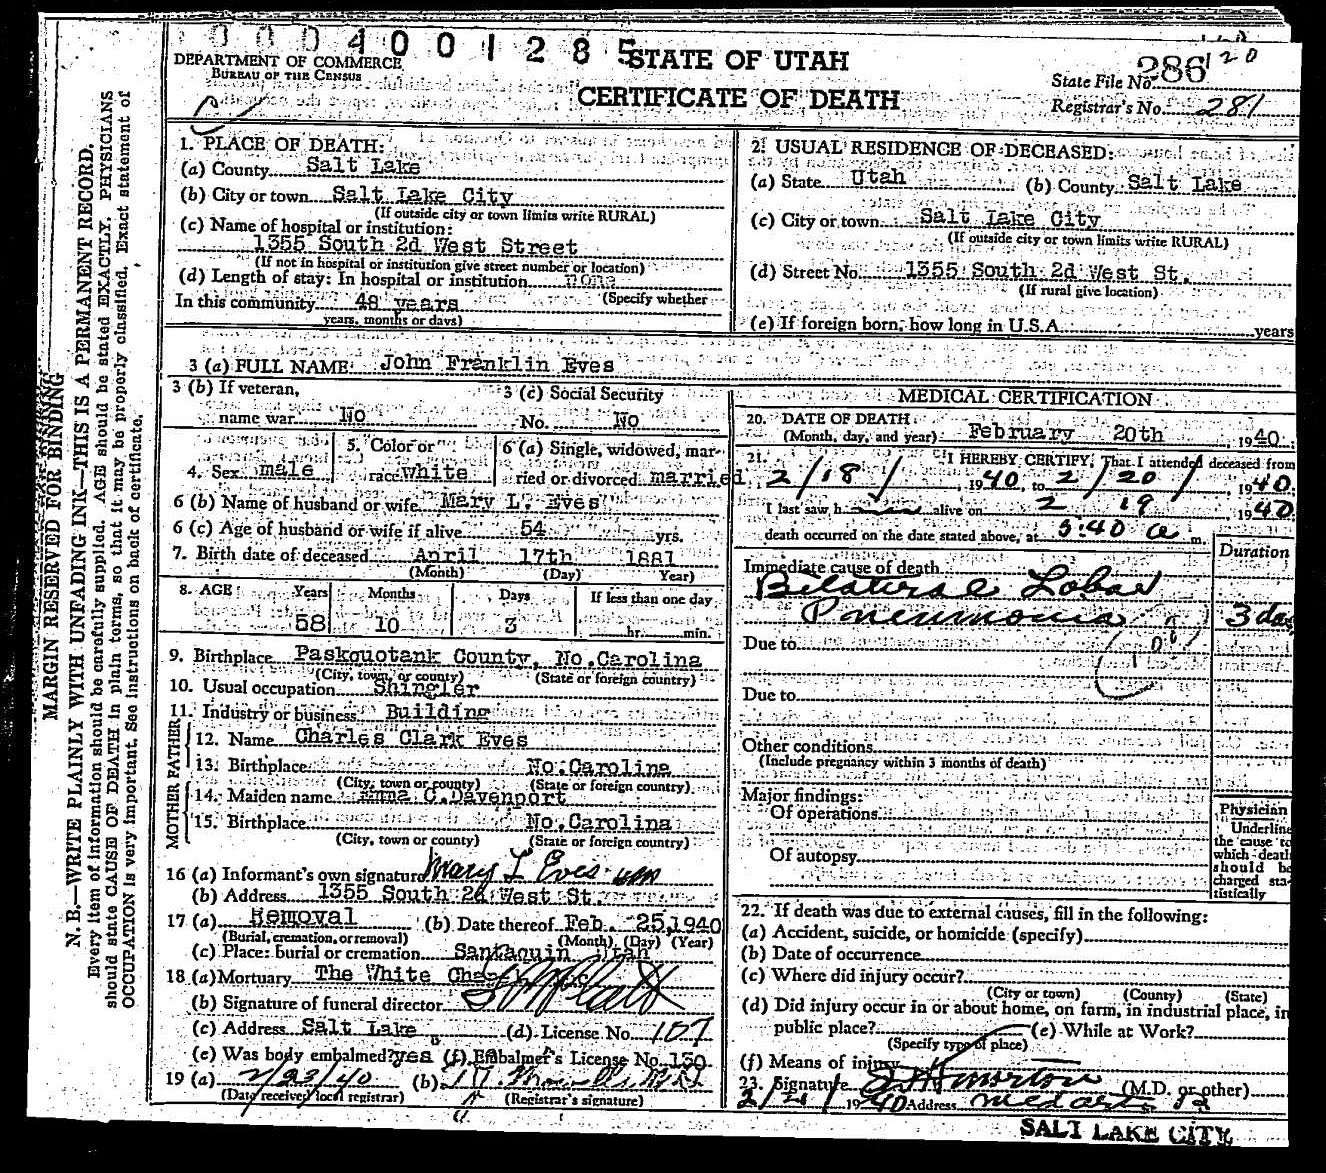 0004001285
STATE OF UTAH
DEPARTMENT OF COMMERCE
BUREAU OF THE CENSUS
CERTIFICATE OF DEATH
State File No. 286 120
Registrar's No. 281
MARGIN RESERVED FOR BINDING
N. B.—WRITE PLAINLY WITH UNFADING INK—THIS IS A PERMANENT RECORD.
Every item of information should be carefully supplied. AGE should be stated EXACTLY. PHYSICIANS
should state CAUSE OF DEATH in plain terms, so that it may be properly classified. Exact statement of
OCCUPATION is very important. See instructions on back of certificate.
1. PLACE OF DEATH:
(a) County Salt Lake
(b) City or town Salt Lake City
(If outside city or town limits write RURAL)
(c) Name of hospital or institution:
1355 South 2d West Street
(If not in hospital or institution give street number or location)
(d) Length of stay: In hospital or institution none
In this community 48 years (Specify whether
years, months or days)
2. USUAL RESIDENCE OF DECEASED:
(a) State Utah (b) County Salt Lake
(c) City or town Salt Lake City
(If outside city or town limits write RURAL)
(d) Street No. 1355 South 2d West St.
(If rural give location)
(e) If foreign born, how long in U.S.A. years
3 (a) FULL NAME John Franklin Eves
3 (b) If veteran,
name war No
3 (c) Social Security
No. No
4. Sex male
5. Color or
race white
6 (a) Single, widowed, mar-
ried or divorced married
6 (b) Name of husband or wife Mary L. Eves
6 (c) Age of husband or wife if alive 54 yrs.
7. Birth date of deceased April 17th 1881
(Month) (Day) Year)
8. AGE Years Months Days If less than one day
58 10 3 hr. min.
9. Birthplace Paskquotank County, No.Carolina
(City, town, or county) (State or foreign country)
10. Usual occupation Shingler
11. Industry or business Building
FATHER
12. Name Charles Clark Eves
13. Birthplace No.Carolina
(City, town or county) (State or foreign country)
MOTHER
14. Maiden name Emma C.Davenport
15. Birthplace No.Carolina
(City, town or county) (State or foreign country)
16 (a) Informant's own signature Mary L Eves
(b) Address 1355 South 2d West St.
17 (a) Removal (b) Date thereof Feb. 25,1940
(Burial, cremation, or removal) (Month) (Day) (Year)
(c) Place: burial or cremation Santaquin Utah
18 (a) Mortuary The White
(b) Signature of funeral director
(c) Address Salt Lake (d) License No. 107
(e) Was body embalmed? yes (f) Embalmer's License No. 130
19 (a) 2/23/40 (b)
(Date received local registrar) (Registrar's signature)
MEDICAL CERTIFICATION
20. DATE OF DEATH
(Month, day, and year) February 20th, 1940
21. I HEREBY CERTIFY, That I attended deceased from
2/18/, 1940, to 2/20/, 1940.
I last saw h alive on 2 19 1940
death occurred on the date stated above, at 5:40 a m.
Duration
Immediate cause of death
Bilateral Lobar
Pneumonia 3 days
Due to
Due to
Other conditions
(Include pregnancy within 3 months of death)
Major findings:
Of operations
Of autopsy
Physician
Underline
the cause to
which death
should be
charged sta-
tistically
22. If death was due to external causes, fill in the following:
(a) Accident, suicide, or homicide (specify)
(b) Date of occurrence
(c) Where did injury occur?
(City or town) (County) (State)
(d) Did injury occur in or about home, on farm, in industrial place, in
public place? (e) While at Work?
(Specify type of place)
(f) Means of injury
23. Signature Morton (M.D. or other)
2/21/1940 Address Med arts
SALT LAKE CITY